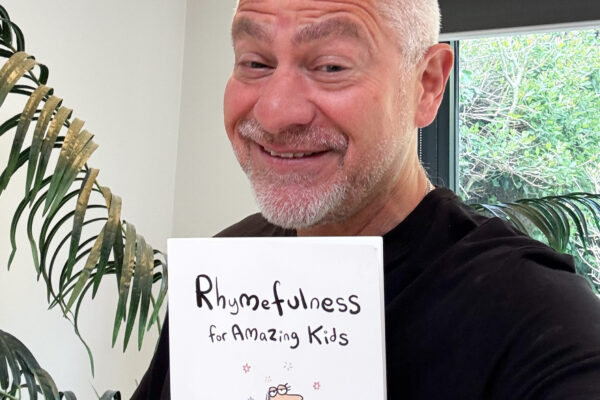 Rhymefulness
for Amazing Kids